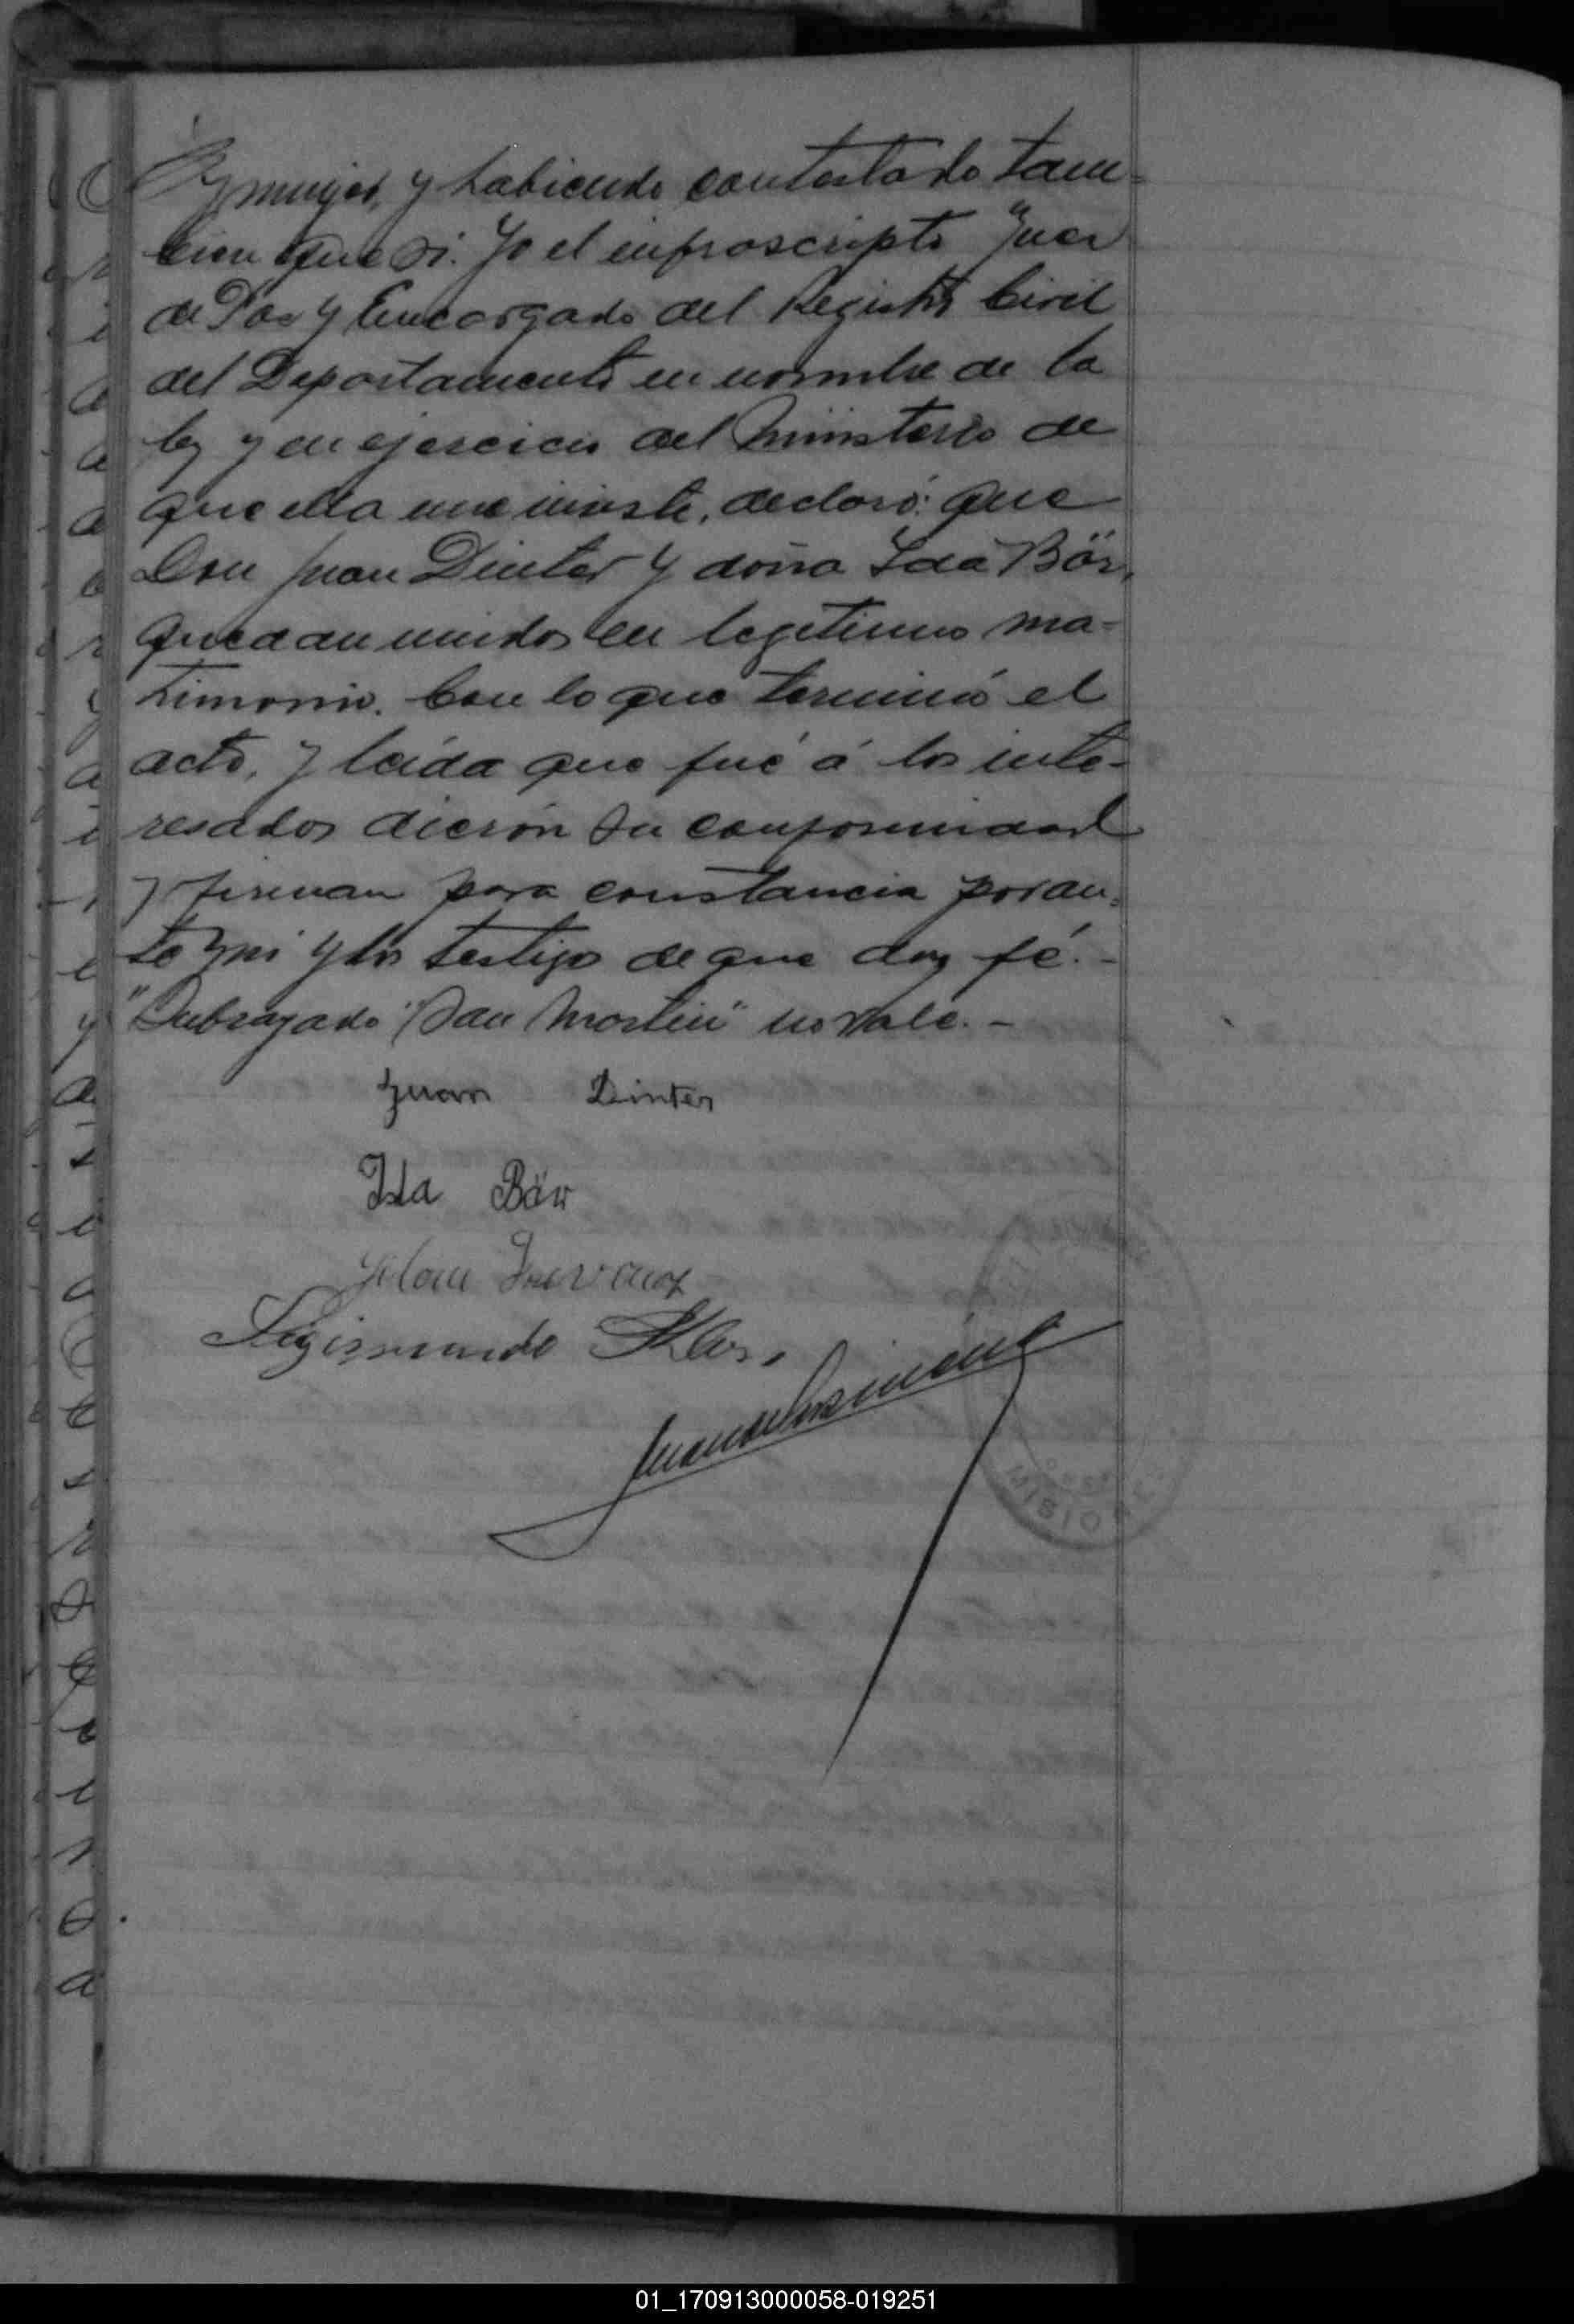 y mujer, y habiendo contestado tam-
bien que si. Yo el infroscripto Juez
de Paz y Encargado del Registro Civil
del Departamento en nombre de la
ley y en ejercicio del Ministerio de
que ella me inviste, declaró: que
Don Juan Dinter y doña Ida Bär,
quedan unidos en legitimo ma-
trimonio. Con lo que terminó el
acto, y leída que fué á los inte-
resados dierón su conformidad
y firman para constancia por an-
te mi y los testigos de que doy fé. -
"Subrayado "San Martin" no vale. -
Juan Dinter
Ida Bär
Sigismundo
MISIONES
01_170913000058-019251